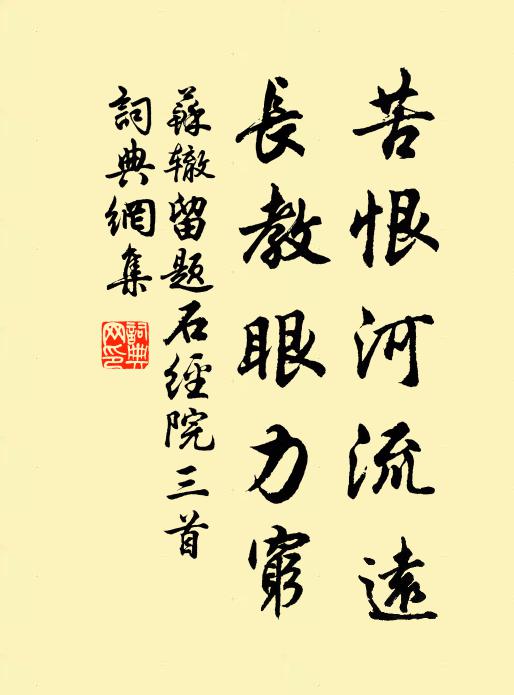 苦恨河流遠
長教眼力窮
蘇辙留题石經院三首
詞典網集
詞典網印